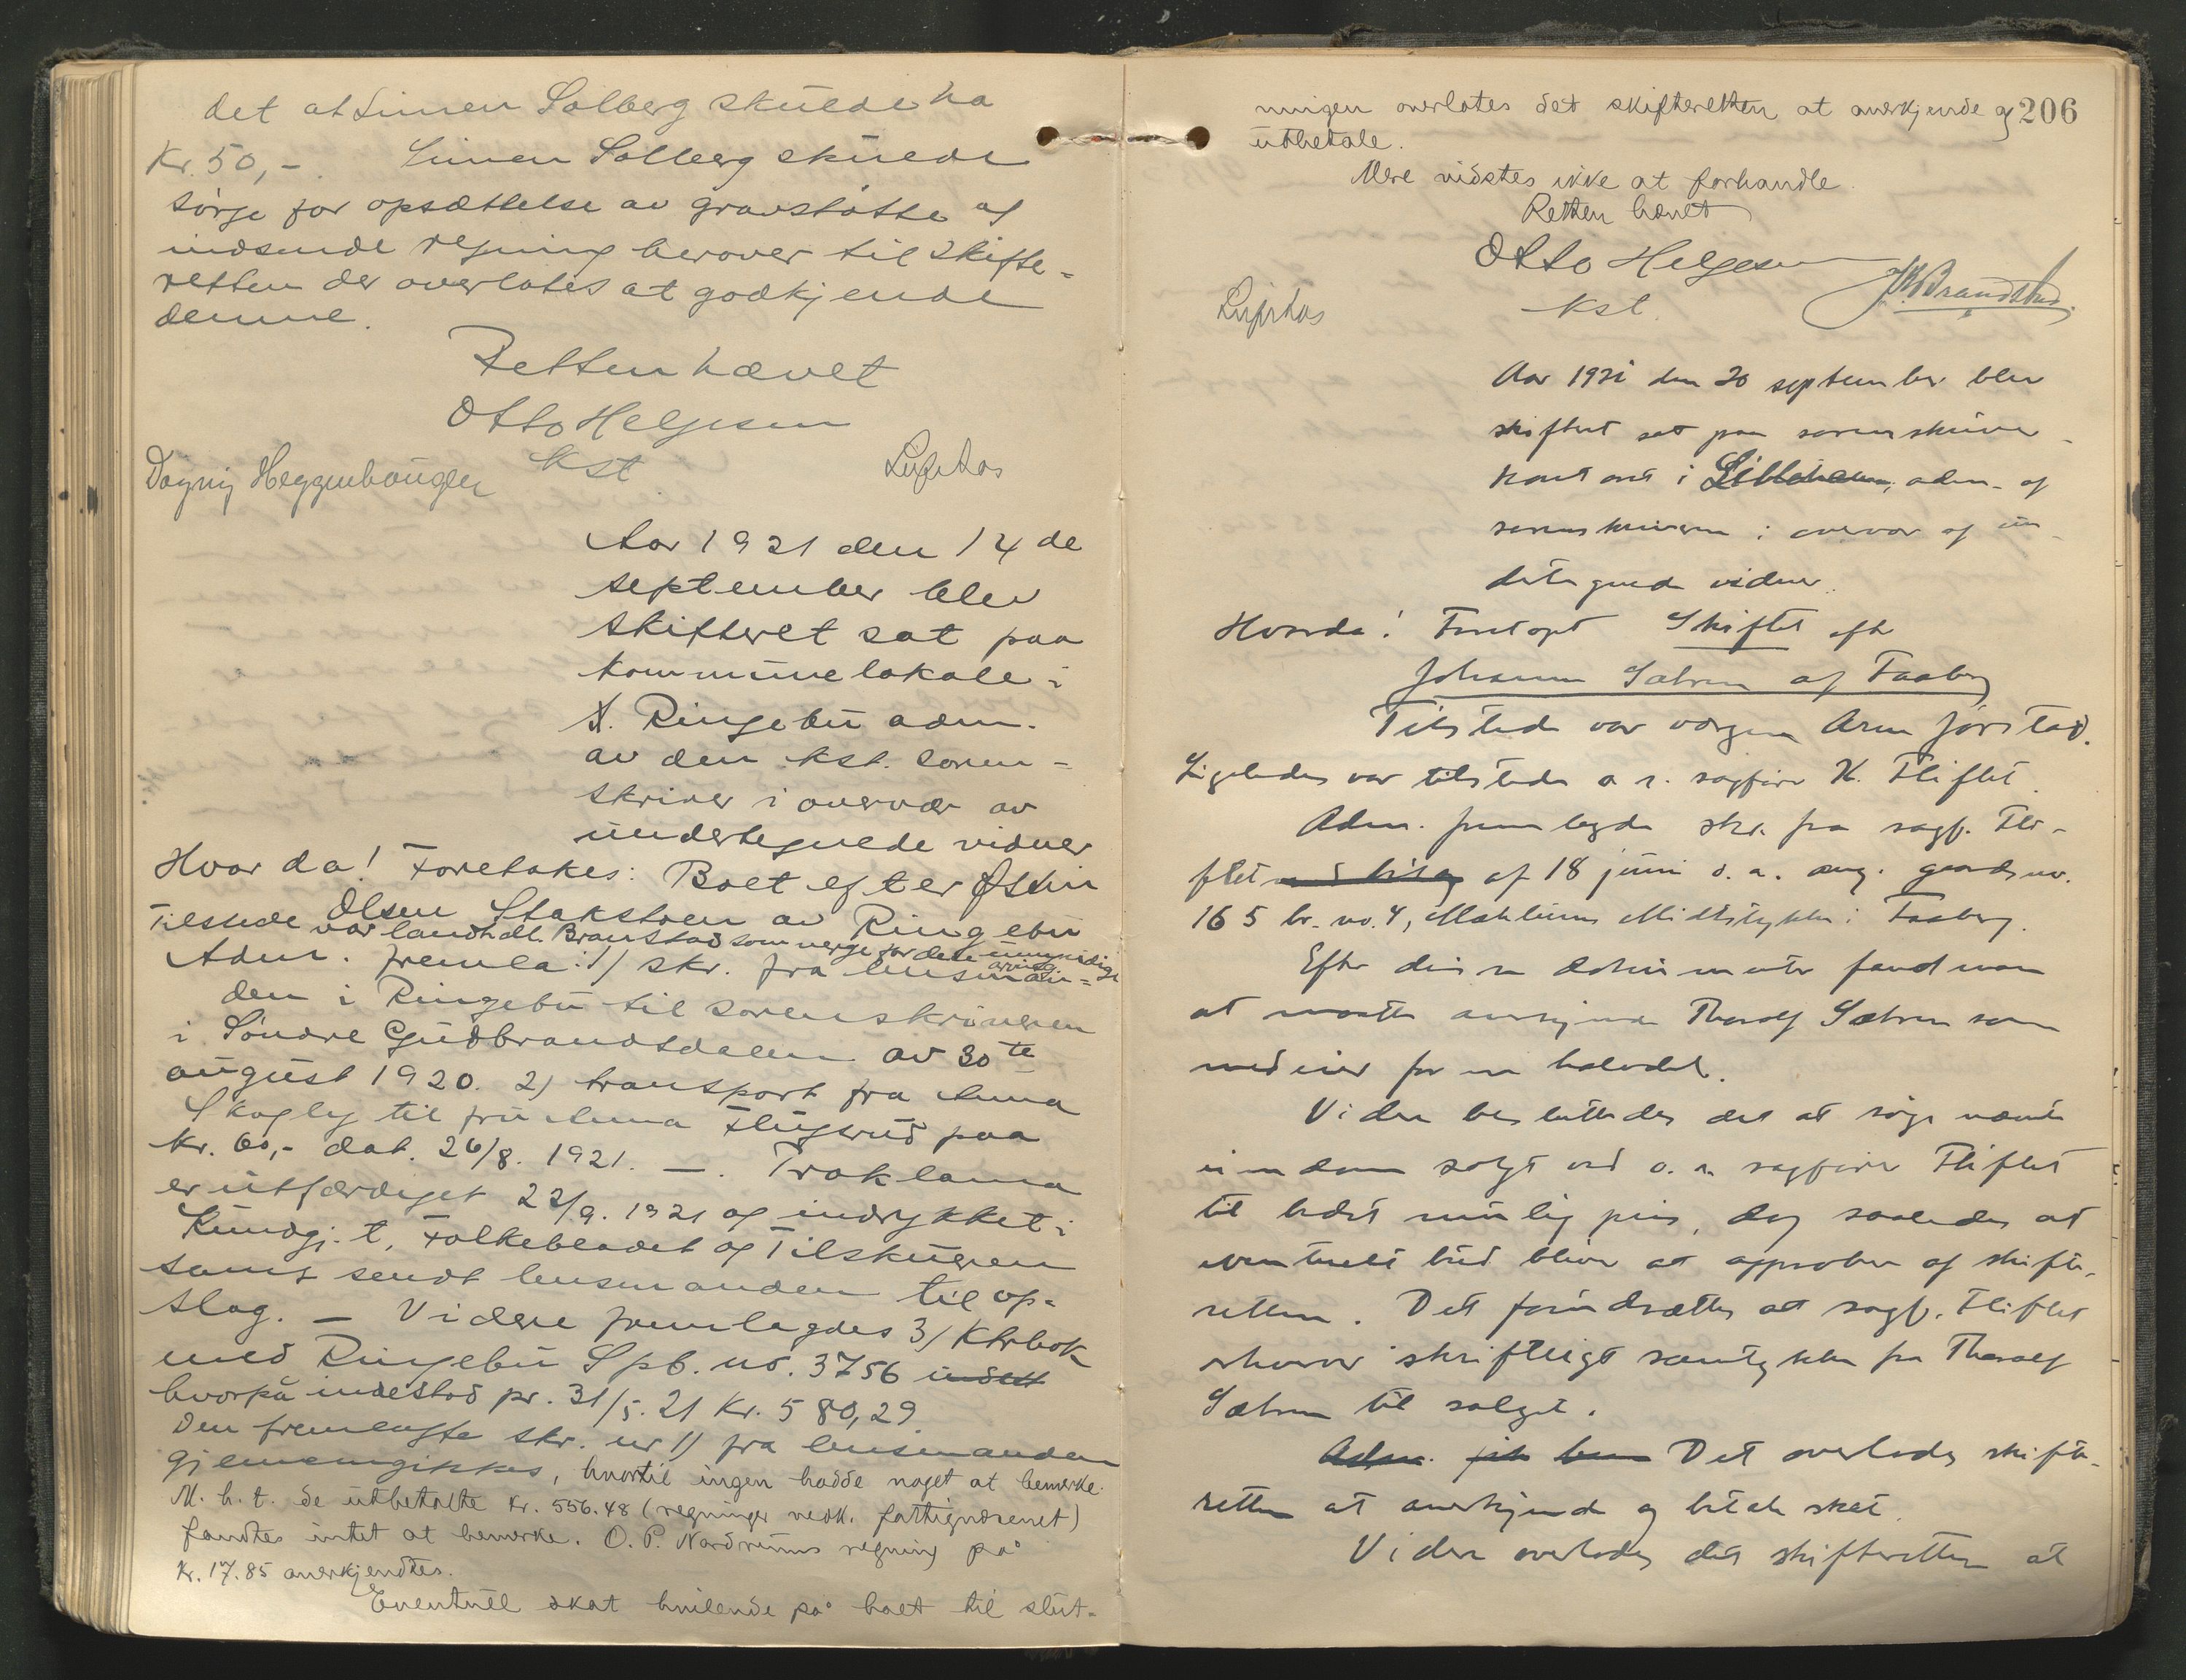 det at Simen Solberg skulde ha
Kr. 50,-. Simen Solberg skulde
sørge for opsættelse av gravstøtte og
indsende regning herover til skifte-
retten der overlates at godkjende
denne.
Retten hævet
Otto Helgesen
kst.
Dagny Heggenhougen
Aar 1921 den 14 de
september blev
skifteret sat paa
kommunelokale i
Ringebu adm.
av den kst. soren-
skriver i overvær av
undertegnede vidner
Hvor da! Foretokes: Boet efter Østen
Olsen Stakstoen av Ringebu
Tilstede var landhdl. Branstad som verge for den umyndige
arving
Adm. fremla: 1/ skr. fra lensman-
den i Ringebu til sorenskriveren
i Søndre Gudbrandsdalen av 30te
august 1920. 2) transport fra Anna
Skogly til fru Anna Flugsrud paa
kr. 60,- dat. 26/8. 1921. —. Proklama
er utfærdiget 22/9. 1921 og indrykket i
Kundgj. t, Folkebladet og Tilskueren
samt sendt lensmanden til op-
slag. — Videre fremlagdes 3/ Ktrbok
med Ringebu Spb. no. 3756 indest
hvorpå indestod pr. 31/5. 21 Kr. 580,29
Den fremlagte skr. nr 1) fra lensmanden
gjennemgikkes, hvortil ingen hadde noget at bemerke.
M. h. t. de utbetalte kr. 556.48 (regninger vedk. fattigvæsenet)
fandtes intet at bemerke. O. P. Nordrums regning på
Kr. 17.85 anerkjendtes.
Eventuell skat hvilende på boet til slut-
206
ningen overlates det skifteretten at anerkjende og
utbetale.
Mere vidstes ikke at forhandle.
Retten hævet
Otto Helgesen
kst.
Brandstad.
Aar 1921 den 20 september blev
skifteret sat paa sorenskriver-
kontoret i Lillehammer, adm. af
sorenskriveren i overvær af un-
dertegnede vidner.
Hvorda! Foretoges Skiftet efter
Johanne Sætren af Faaberg
Tilstede var vergen Arne Jørstad.
Ligeledes var tilstede o. r. sagfører K. Fliflet.
Adm. fremlagde skr. fra sagf. Fli-
flet med bilag af 18 juni d. a. ang. gaardsnr.
165 br. no. 4, Mæhlums Midtstykke i Faaberg.
Efter disse dokumenter fandt man
at maatte anerkjende Thoralf Sætren som
medeier for en halvdel.
Videre besluttedes det at søge nævnte
eiendom solgt ved o. r. sagfører Fliflet
til bedst mulig pris, dog saaledes at
eventuelt bud bliver at approbere af skifte-
retten. Det forudsættes at sagf. Fliflet
erhverver skriftligt samtykke fra Thoralf
Sætren til salget.
Adm. Det overlodes skifte-
retten at anerkjende og betale skat.
Videre overlodes det skifteretten at